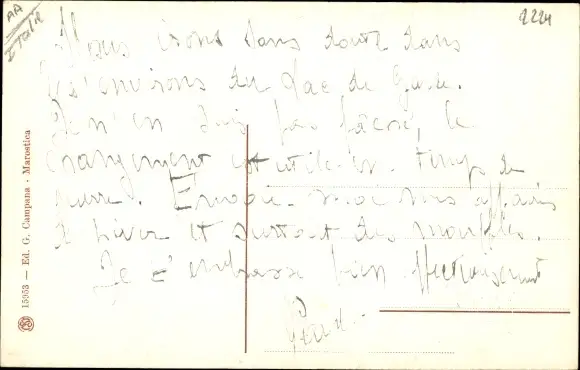 AA
Italie
2224
Nous irons sans doute dans
les environs du Lac de Garde.
Je n'en suis pas fâché, le
changement est utile en temps de
guerre. Envoie-moi mes affaires
d'hiver et surtout des moufles.
Je t'embrasse bien affectueusement
15953 — Ed. G. Campana - Marostica